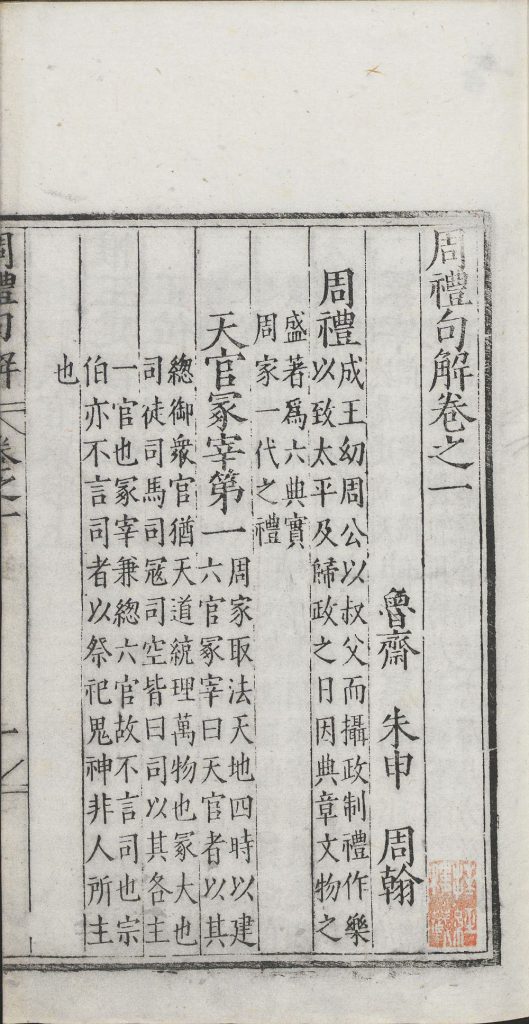 周禮句解卷之一
魯齋 朱申 周翰
周禮 成王幼周公以叔父而攝政制禮作樂
以致太平及歸政之日因典章文物之
盛著爲六典實
周家一代之禮
天官冢宰第一 周家取法天地四時以建
六官冢宰曰天官者以其
總御衆官猶天道統理萬物也冢大也
司徒司馬司寇司空皆曰司以其各主
一官也冢宰兼總六官故不言司也宗
伯亦不言司者以祭祀鬼神非人所主
也
周禮句解 卷之一